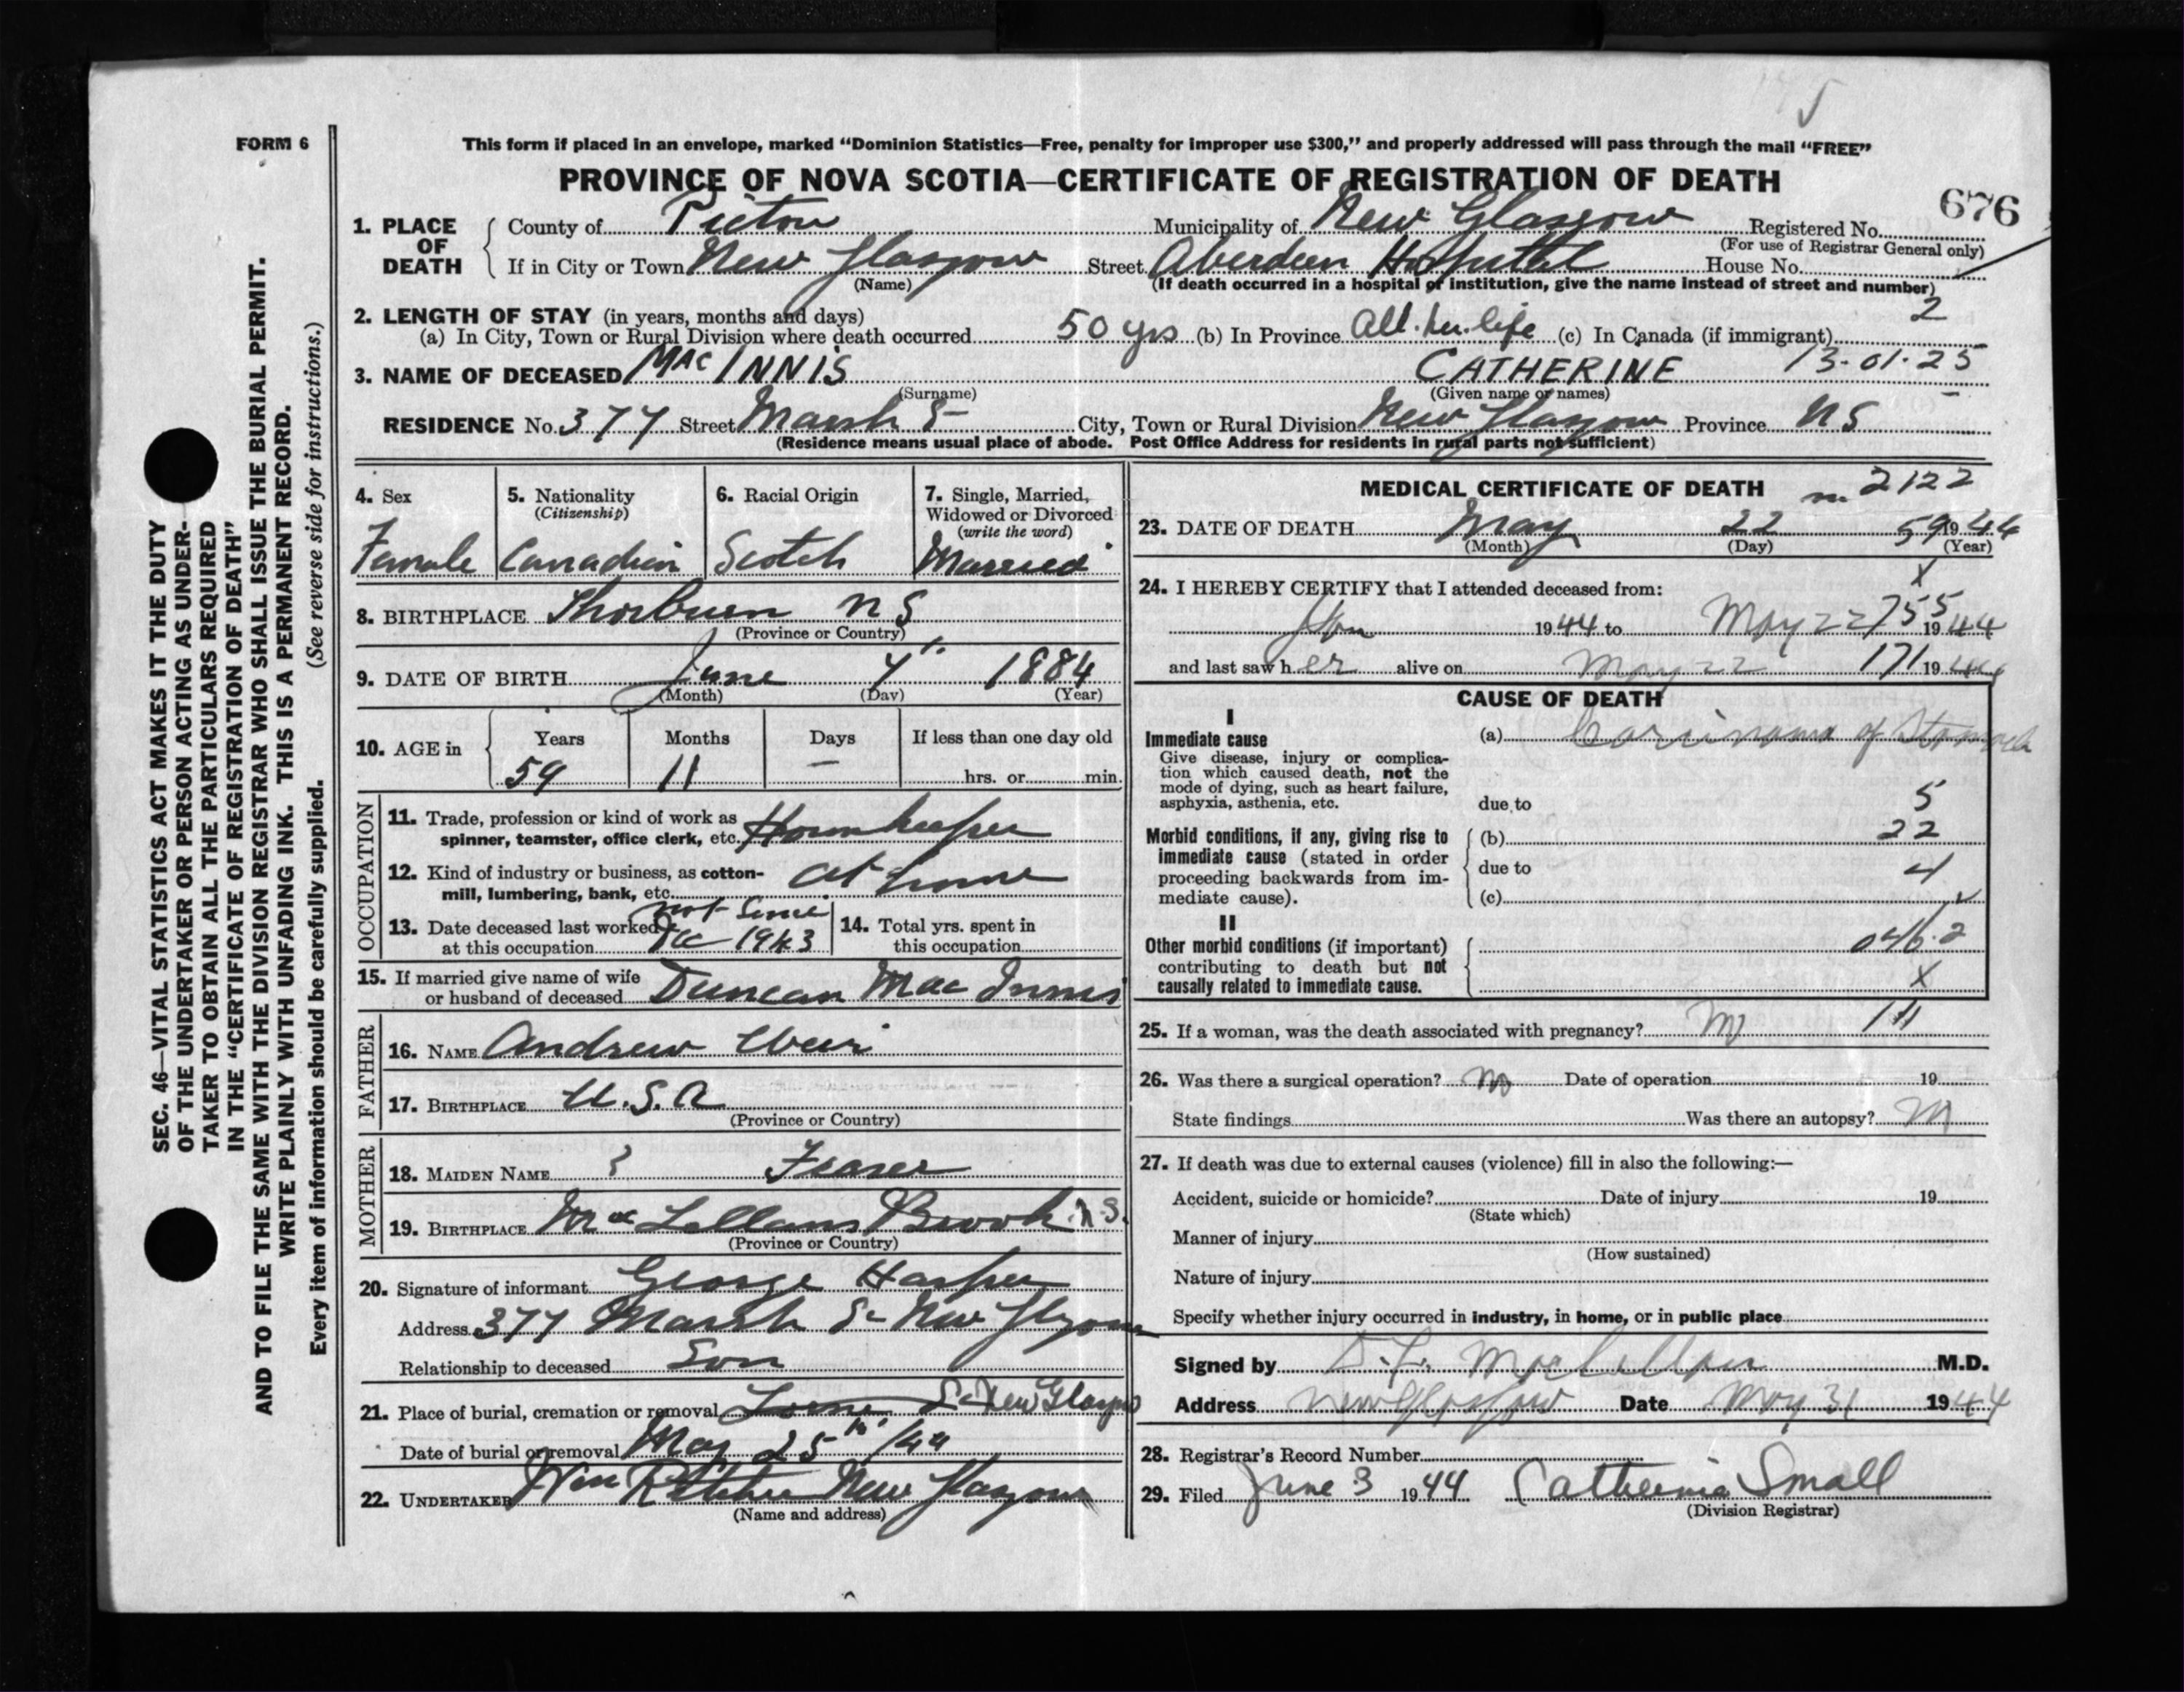 FORM 6
This form if placed in an envelope, marked “Dominion Statistics—Free, penalty for improper use $300,” and properly addressed will pass through the mail “FREE”
PROVINCE OF NOVA SCOTIA—CERTIFICATE OF REGISTRATION OF DEATH
676
1. PLACE OF DEATH
County of Pictou Municipality of New Glasgow Registered No.
(For use of Registrar General only)
If in City or Town New Glasgow Street Aberdeen Hospital House No.
(Name) (If death occurred in a hospital or institution, give the name instead of street and number)
2
2. LENGTH OF STAY (in years, months and days)
(a) In City, Town or Rural Division where death occurred 50 yrs (b) In Province All her life (c) In Canada (if immigrant)
3. NAME OF DECEASED MAC INNIS CATHERINE 13-01-25
(Surname) (Given name or names)
RESIDENCE No. 377 Street Marsh St City, Town or Rural Division New Glasgow Province NS
(Residence means usual place of abode. Post Office Address for residents in rural parts not sufficient)
4. Sex Female
5. Nationality (Citizenship) Canadian
6. Racial Origin Scotch
7. Single, Married, Widowed or Divorced (write the word) Married
8. BIRTHPLACE Thorburn NS
(Province or Country)
9. DATE OF BIRTH June 4" 1884
(Month) (Day) (Year)
10. AGE in Years Months Days If less than one day old
59 11 — hrs. or min.
OCCUPATION
11. Trade, profession or kind of work as spinner, teamster, office clerk, etc. Housekeeper
12. Kind of industry or business, as cotton-mill, lumbering, bank, etc. at home
13. Date deceased last worked at this occupation not since Dec 1943
14. Total yrs. spent in this occupation
15. If married give name of wife or husband of deceased Duncan Mac Innis
FATHER
16. NAME Andrew Weir
17. BIRTHPLACE U.S.A
(Province or Country)
MOTHER
18. MAIDEN NAME ? Fraser
19. BIRTHPLACE MacLellans Brook N.S.
(Province or Country)
20. Signature of informant George Harper
Address 377 Marsh St New Glasgow
Relationship to deceased Son
21. Place of burial, cremation or removal Lorne St New Glasgow
Date of burial or removal May 25th/44
22. UNDERTAKER Wm New Glasgow
(Name and address)
MEDICAL CERTIFICATE OF DEATH 2122
23. DATE OF DEATH May 22 59 1944
(Month) (Day) (Year)
24. I HEREBY CERTIFY that I attended deceased from: X
Jan 1944 to May 22 755 1944
and last saw her alive on May 22 171 1944
CAUSE OF DEATH
I
Immediate cause
Give disease, injury or complication which caused death, not the mode of dying, such as heart failure, asphyxia, asthenia, etc.
(a) Carcinoma of Stomach
due to 5
Morbid conditions, if any, giving rise to immediate cause (stated in order proceeding backwards from immediate cause).
(b) 22
due to 4
(c)
II
Other morbid conditions (if important) contributing to death but not causally related to immediate cause.
046.2
X
25. If a woman, was the death associated with pregnancy? No 111
26. Was there a surgical operation? No Date of operation 19
State findings Was there an autopsy? No
27. If death was due to external causes (violence) fill in also the following:—
Accident, suicide or homicide? Date of injury 19
(State which)
Manner of injury
(How sustained)
Nature of injury
Specify whether injury occurred in industry, in home, or in public place
Signed by D.F. MacLellan M.D.
Address New Glasgow Date May 31 1944
28. Registrar's Record Number
29. Filed June 3 1944 Catherine Small
(Division Registrar)
SEC. 46—VITAL STATISTICS ACT MAKES IT THE DUTY
OF THE UNDERTAKER OR PERSON ACTING AS UNDER-
TAKER TO OBTAIN ALL THE PARTICULARS REQUIRED
IN THE “CERTIFICATE OF REGISTRATION OF DEATH”
AND TO FILE THE SAME WITH THE DIVISION REGISTRAR WHO SHALL ISSUE THE BURIAL PERMIT.
WRITE PLAINLY WITH UNFADING INK. THIS IS A PERMANENT RECORD.
Every item of information should be carefully supplied. (See reverse side for instructions.)